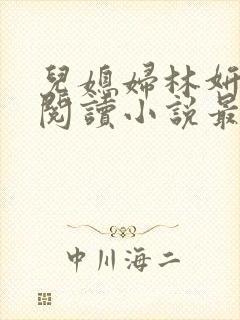 兒媳婦林妍
閱讀小說最
中川海二